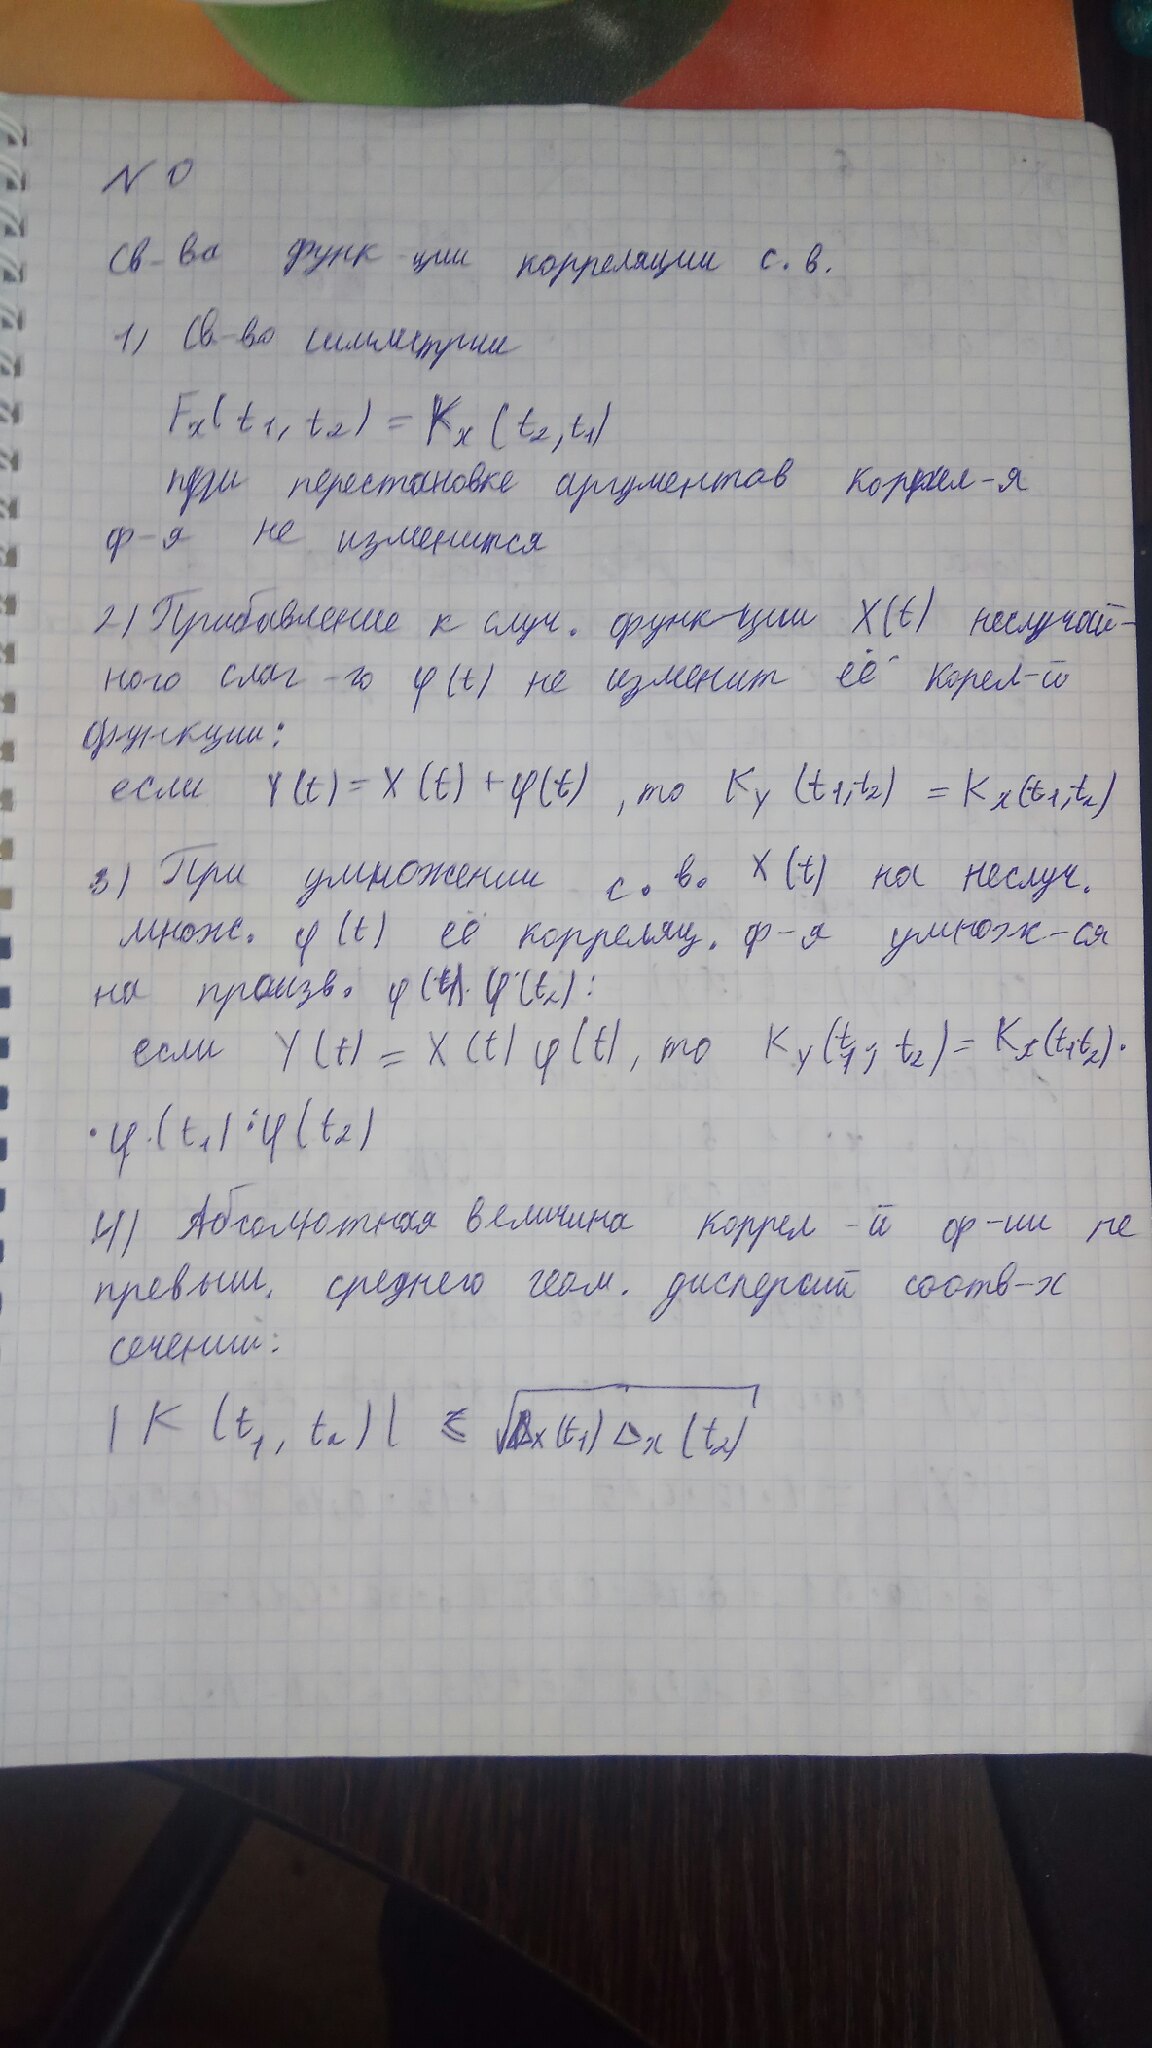 N 0
Св-ва функ-ции корреляции с. в.
1) Св-во симметрии
Fx(t1, t2) = Kx (t2, t1)
при перестановке аргументов коррел-я
ф-я не изменится
2) Прибавление к случ. функ-ции X(t) неслучай-
ного слаг-го φ(t) не изменит её корел-й
функции:
если Y(t) = X(t) + φ(t), то Ky (t1, t2) = Kx(t1, t2)
3) При умножении с. в. X(t) на неслуч.
множ. φ(t) её корреляц. ф-я умнож-ся
на произв. φ(t1)·φ(t2):
если Y(t) = X(t) φ(t), то Ky(t1; t2) = Kx(t1 t2)·
·φ·(t1)·φ(t2)
4) Абсолютная величина коррел-й ф-ии не
превыш. среднего геом. дисперсий соотв-х
сечений:
|K (t1, t2)| ≤ √Dx(t1) Dx(t2)